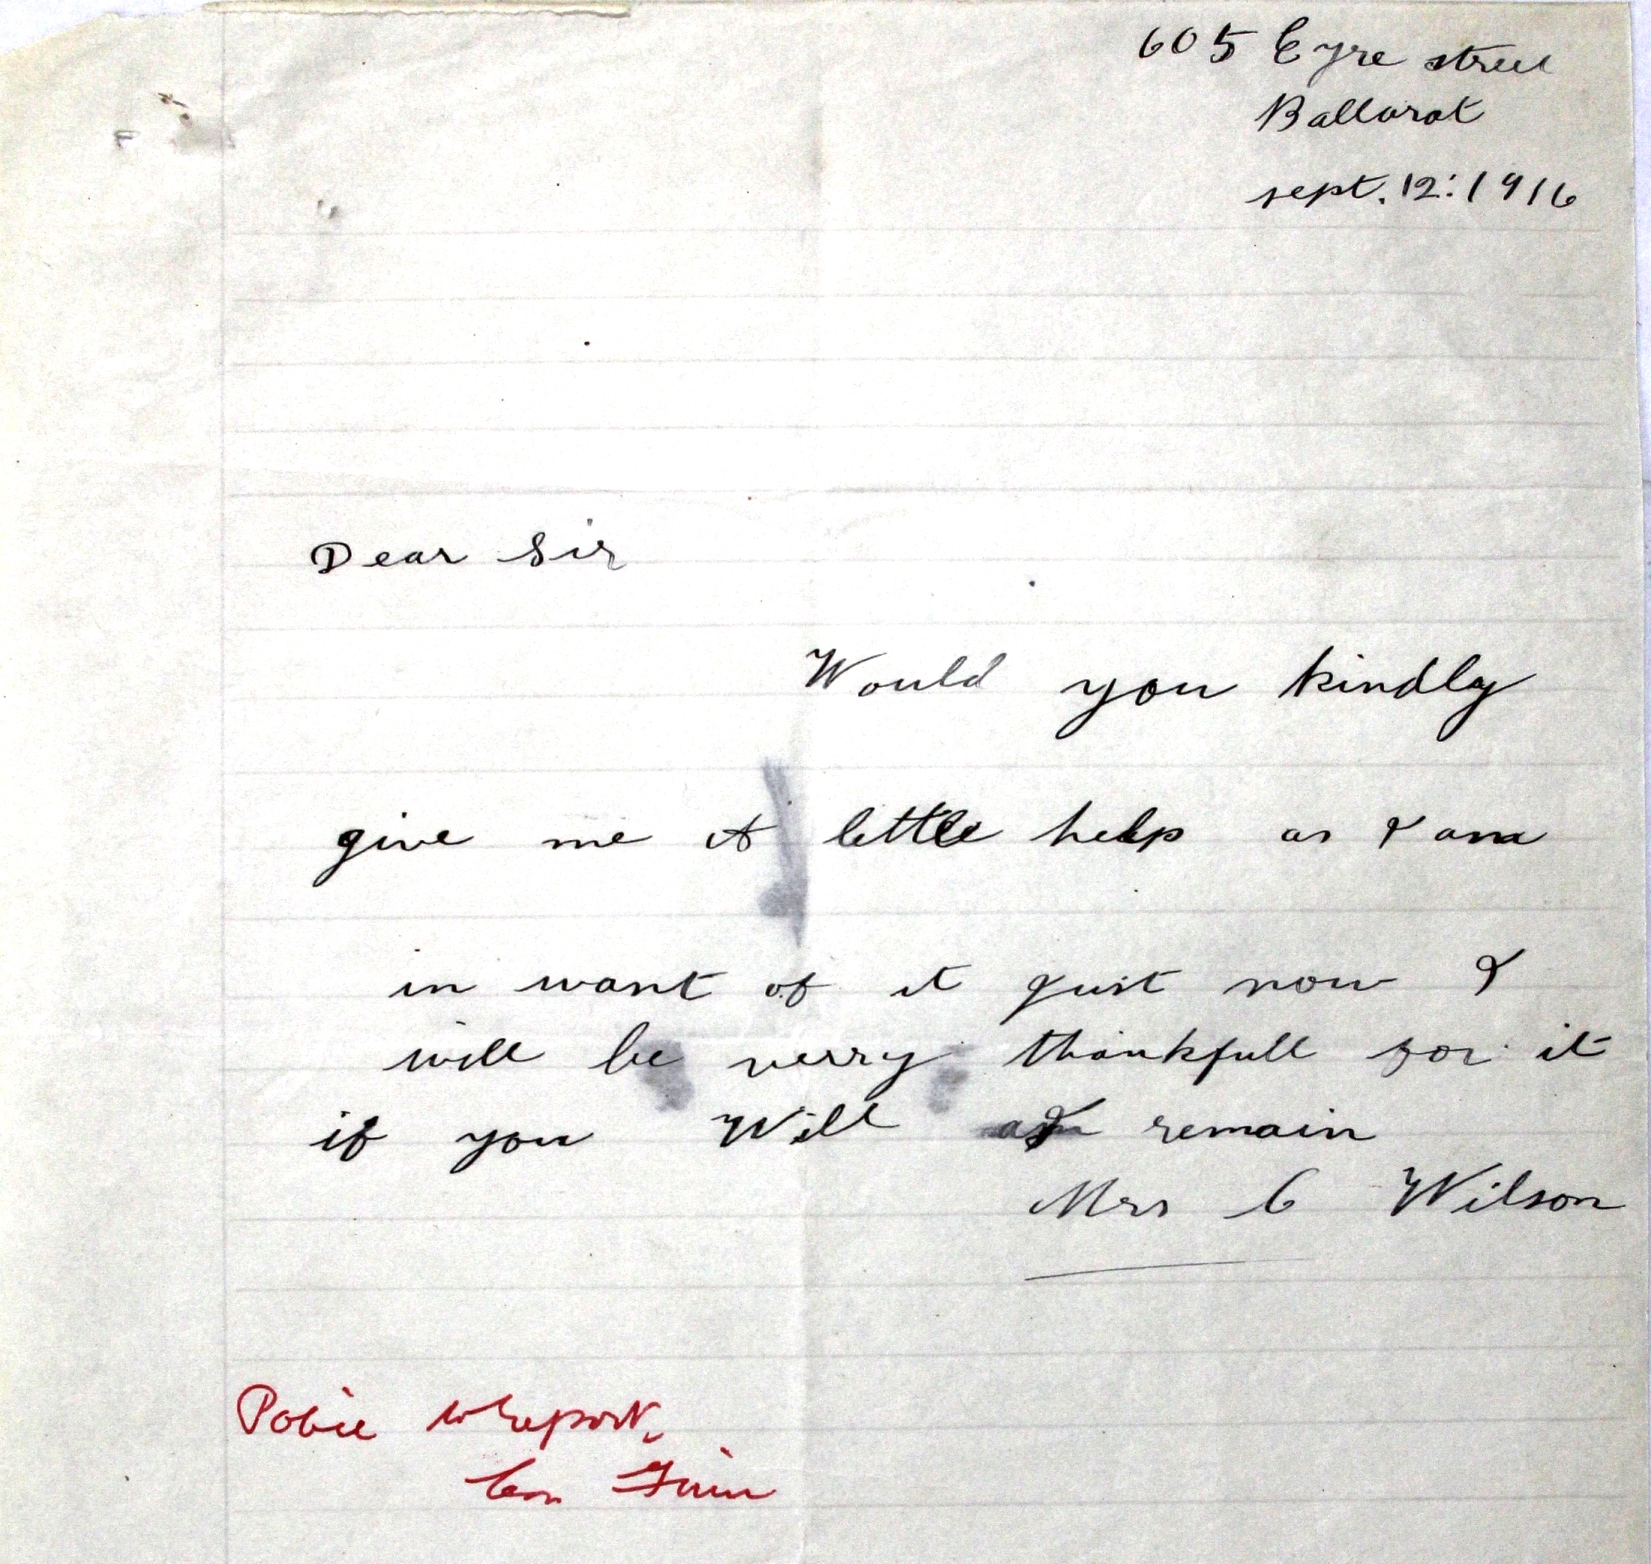 605 Eyre street
Ballarat
sept. 12: 1916
Dear Sir
Would you kindly
give me A little help as I am
in want of it just now I
will be verry thankfull for it
if you Will I remain
Mrs C Wilson
Police to report,
Con